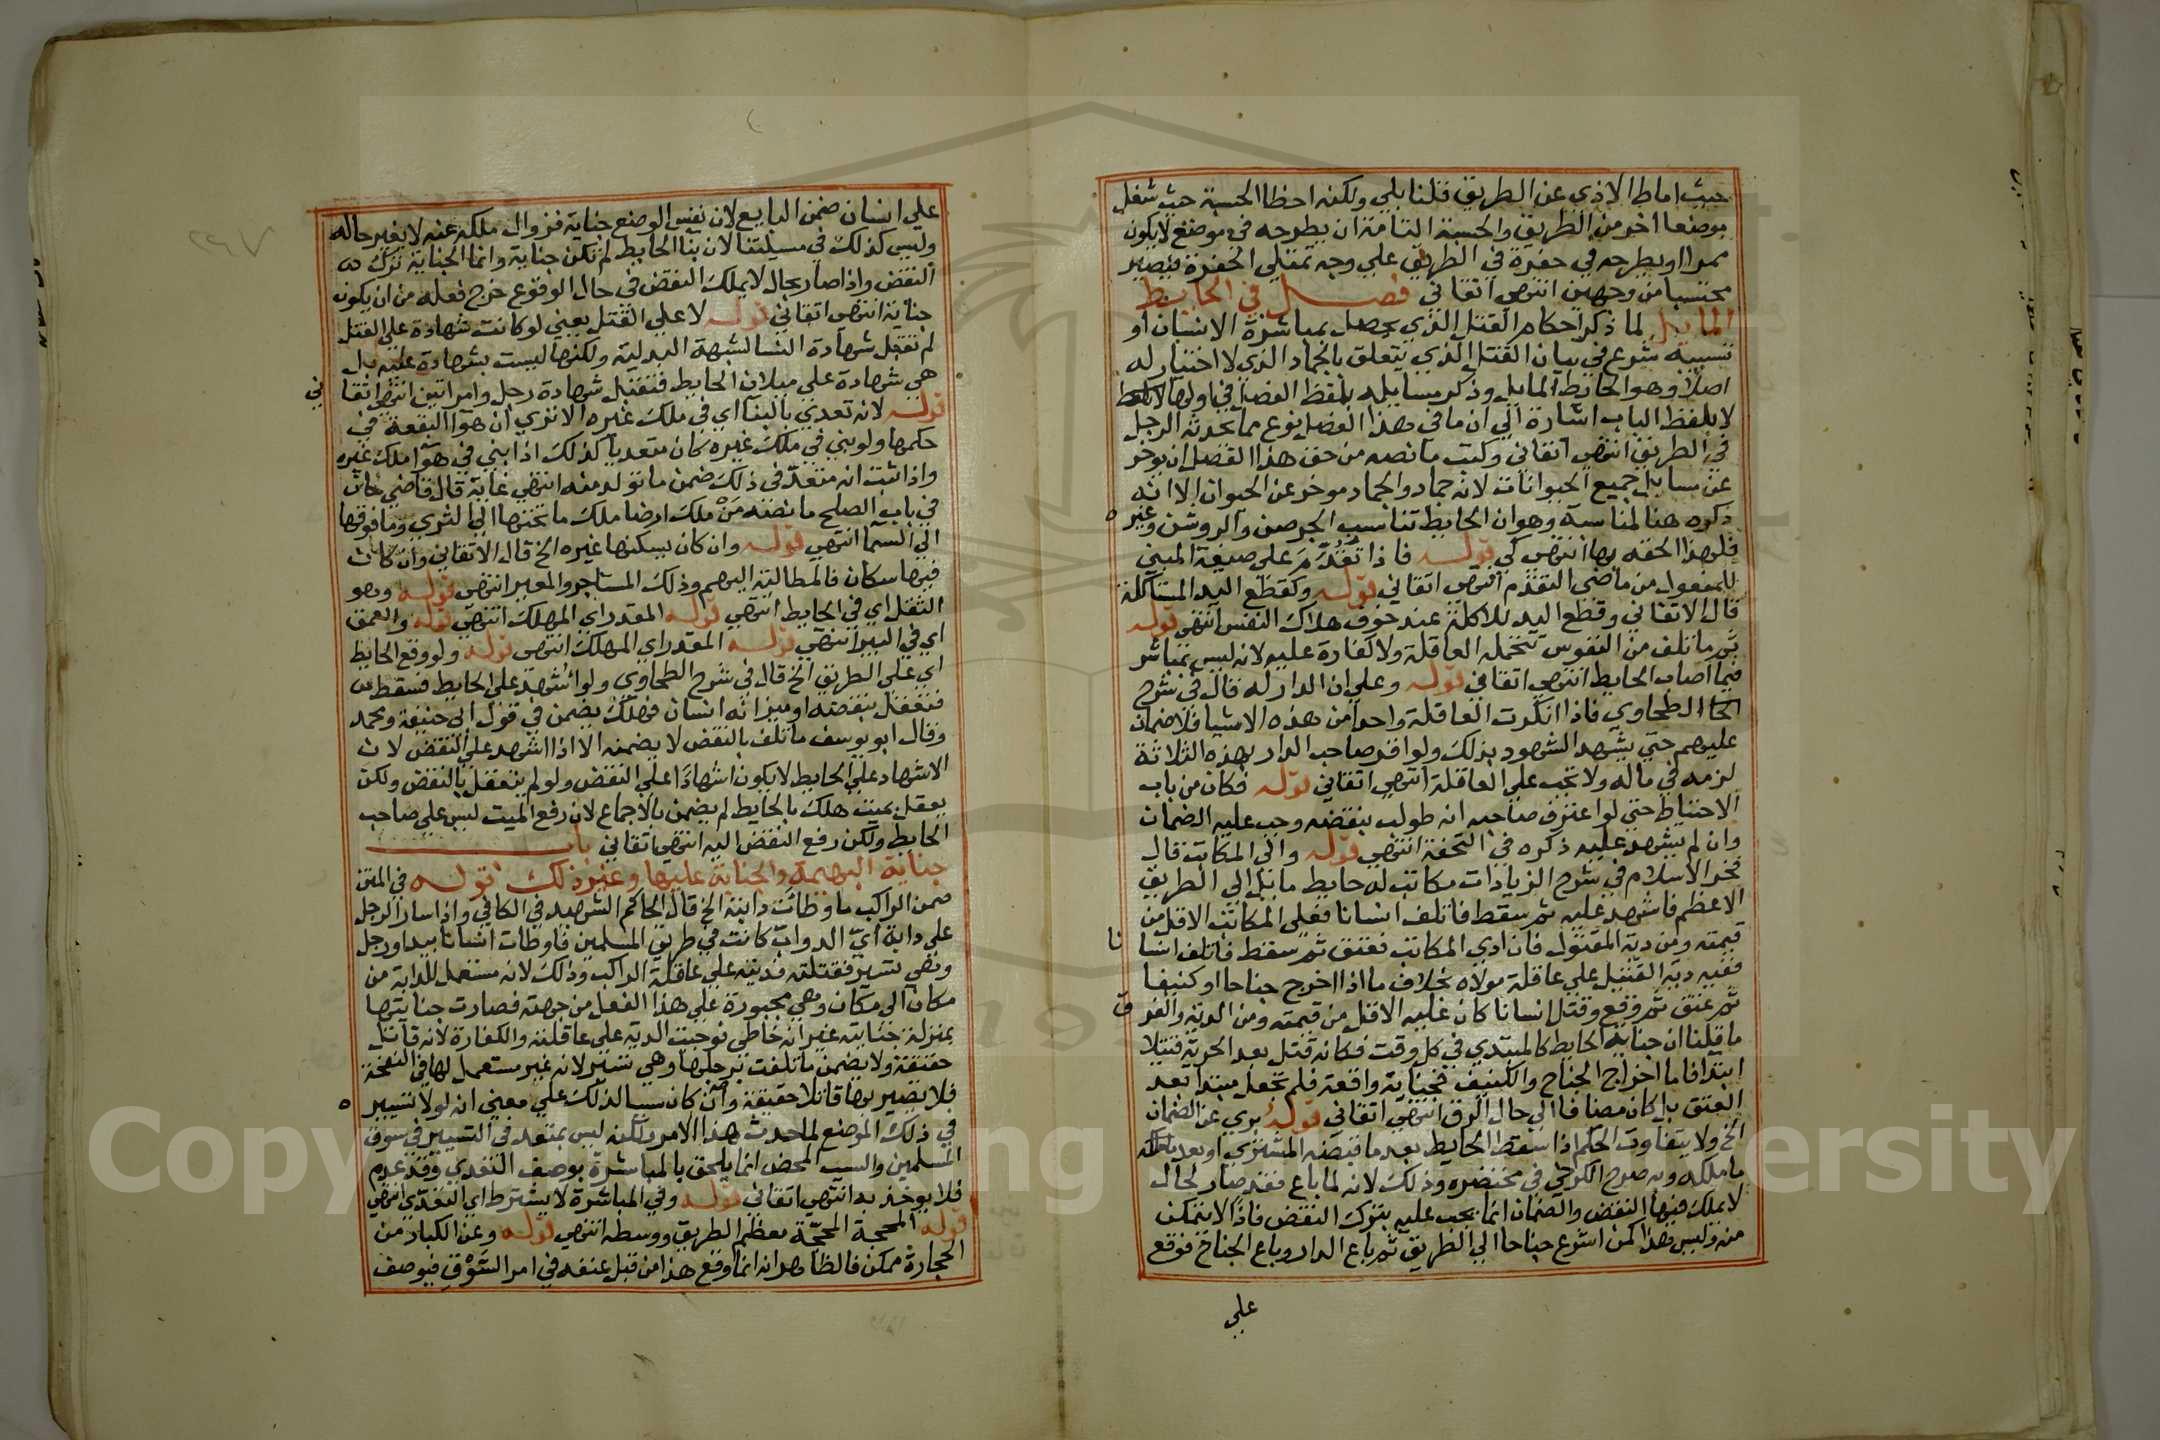 حيث اماط الاذي عن الطريق قلنا بلي ولكنه اخطا الحسبة حيث شغل
موضعا اخر من الطريق والحسبة التامة ان يطرحه في موضع لا يكون
ممرا او يطرحه في حفرة في الطريق علي وجه تمتلي الحفرة فيصير
محتسبا من وجهين انتهي اتقاني فصل في الحايط
المايل لما ذكر احكام القتل الذي يحصل بمباشرة الانسان او
تسبيبه شرع في بيان القتل الذي يتعلق بالجماد الذي لا اختيار له
اصلا وهو الحايط المايل وذكر مسايله بلفظ الفصل في اولها
لا بلفظ الباب اشارة الي ان ما في هذا الفصل نوع مما يحدثه الرجل
في الطريق انتهي اتقاني وكتب ما نصه من حق هذا الفصل ان يوخر
عن مسايل جميع الحيوانات لانه جماد والجماد موخر عن الحيوان الا انه
ذكره هنا لمناسبة وهو ان الحايط تناسب الجرصن والروشن وغيره
فلهذا الحقه بها انتهي كي قوله فاذا تقدم علي صيغة المبني
للمفعول من ماضي التقدم انتهي اتقاني قوله وكقطع اليد المتاكلة
قال الاتقاني وقطع اليد للاكلة عند خوف هلاك النفس انتهي قوله
ثم ما تلف من النفوس تتحمله العاقلة ولا كفارة عليه لانه ليس بمباشر
فيما اصاب الحايط انتهي اتقاني قوله وعلي ان الدار له قال في شرح
الطحاوي فاذا انكرت العاقلة واحدا من هذه الاشيا فلا ضمان
عليهم حتي يشهد الشهود بذلك ولو اقر صاحب الدار بهذه الثلاثة
لزمه في ماله ولا تجب علي العاقلة انتهي اتقاني قوله فكان من باب
الاحتياط حتي لو اعترف صاحبه انه طولب بنقضه وجب عليه الضمان
وان لم يشهد عليه ذكره في التحفة انتهي قوله والي المكاتب قال
فخر الاسلام في شرح الزيادات مكاتب له حايط مايل الي الطريق
الاعظم فاشهد عليه ثم سقط فاتلف انسانا فعلي المكاتب الاقل من
قيمته ومن دية المقتول فان ادي المكاتب فعتق ثم سقط فاتلف انسانا
ففيه دية القتيل علي عاقلة مولاه بخلاف ما اذا اخرج جناحا او كنيفا
ثم عتق ثم وقع وقتل انسانا كان عليه الاقل من قيمته ومن الدية والفرق
ما قلنا ان جناية الحايط كالمبتدي في كل وقت فكانه قتل بعد الحرية قتيلا
ابتدا فاما اخراج الجناح والكنيف فجناية واقعة فلم تجعل مبتدا بعد
العتق بل كان مضافا الي حال الرق انتهي اتقاني قوله بري عن الضمان
الخ ولا يتفاوت الحكم اذا سقط الحايط بعد ما قبضه المشتري او بعد
ما ملكه وبه صرح الكرخي في مختصره وذلك لانه لما باع فقد صار لحال
لا يملك فيها النقض والضمان انما يجب عليه بترك النقض فاذا لا يتمكن
منه وليس هذا كمن اشرع جناحا الي الطريق ثم باع الدار وباع الجناح فوقع
علي
علي انسان ضمن البايع لان نفس الوضع جناية فزوال ملكه عنه لا يغير حاله
وليس كذلك في مسيلتنا لان بنا الحايط لم تكن جناية وانما الجناية ترك
النقض واذا صار بحال لا يملك النقض في حال الوقوع خرج فعله من ان يكون
جناية انتهي اتقاني قوله لا علي القتل يعني لو كانت شهادة علي القتل
لم تقبل شهادة النسا لشبهة البدلية ولكنها ليست بشهادة عليه بل
هي شهادة علي ميلان الحايط فتقبل شهادة رجل وامراتين انتهي اتقاني
قوله لانه تعدي بالبنا اي في ملك غيره الا تري ان هوا البقعة في
حكمها ولو بني في ملك غيره كان متعديا كذلك اذا بني في هوا ملك غيره
واذا ثبت انه متعد في ذلك ضمن ما تولد منه انتهي غاية قال قاضي خان
في باب الصلح ما نصه من ملك ارضا ملك ما تحتها الي الثري وما فوقها
الي السما انتهي قوله وان كان يسكنها غيره الخ قال الاتقاني وان كان
فيها سكان فالمطالبة اليهم وذلك المستاجر والمعير انتهي قوله وهو
الثقل اي في الحايط انتهي قوله المقدر اي المهلك انتهي قوله والعمق
اي في البير انتهي قوله المقدر اي المهلك انتهي قوله ولو وقع الحايط
اي علي الطريق الخ قال في شرح الطحاوي ولو اشهد علي الحايط فسقط
فتعقل بنقضه او بترابه انسان فهلك يضمن في قول ابي حنيفة ومحمد
وقال ابو يوسف ما تلف بالنقض لا يضمنه الا اذا اشهد علي النقض لان
الاشهاد علي الحايط لا يكون اشهادا علي النقض ولو لم يتعقل بالنقض ولكن
يعقل بميت هلك بالحايط لم يضمن بالاجماع لان رفع الميت ليس علي صاحب
الحايط ولكن رفع النقض اليه انتهي اتقاني باب
جناية البهيمة والجناية عليها وغير ذلك قوله في المتن
ضمن الراكب ما وطات دابته الخ قال الحاكم الشهيد في الكافي واذا سار الرجل
علي دابة اي الدواب كانت في طريق المسلمين فاوطات انسانا بيد او رجل
وهي تسير فقتلته فديته علي عاقلة الراكب وذلك لانه مستعمل للدابة من
مكان الي مكان وهي مجبورة علي هذا الفعل من جهته فصارت جنايتها
بمنزلة جنايته غير انه خاطي فوجبت الدية علي عاقلته والكفارة لانه قاتل
حقيقة ولا يضمن ما تلفت برجلها وهي تسير لانه غير مستعمل لها في النفحة
فلا تصير بها قاتلا حقيقة وان كان سببا لذلك علي معني انه لولا تسييره
في ذلك الموضع لما حدث هذا الامر ولكن ليس بمتعد في التسيير في سوق
المسلمين والسبب المحض انما يلحق بالمباشرة بوصف التعدي وقد عدم
فلا يوخذ به انتهي اتقاني قوله وفي المباشرة لا يشترط اي التعدي انتهي
قوله المحجة المحجة معظم الطريق ووسطه انتهي قوله وعن الكبار من
الحجارة ممكن فالظاهر انه انما وقع هذا من قبل عنفه في امر السوق فيوصف